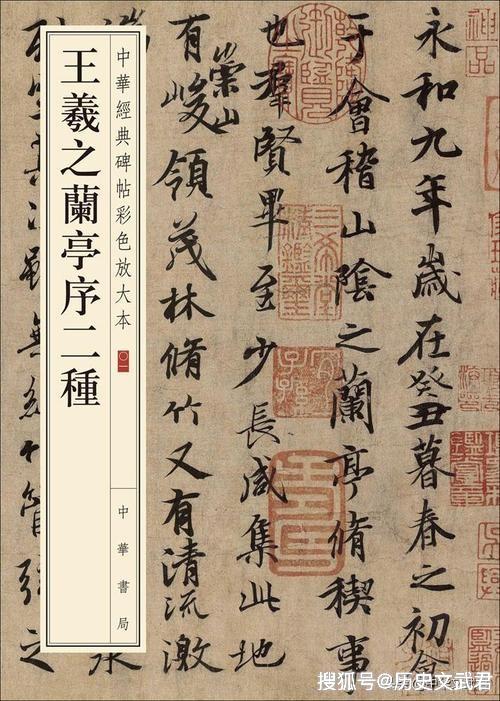 永和九年歲在癸丑暮春之初會
于會稽山陰之蘭亭脩稧事
也羣賢畢至少長咸集此地
有崇山峻領茂林脩竹又有清流激
水
列坐其次雖無絲竹管弦之
中華經典碑帖彩色放大本 〇一
王羲之蘭亭序二種
中華書局
神品
搜狐号@历史文武君